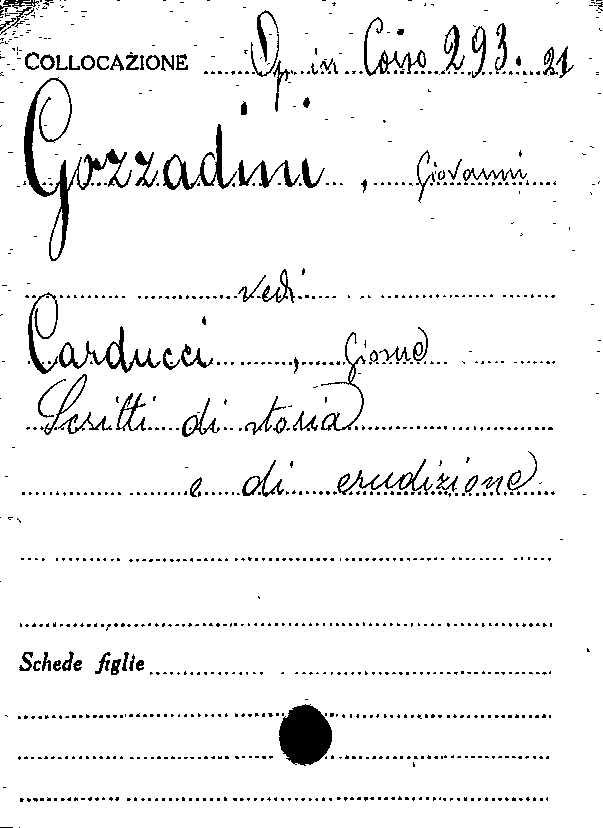 COLLOCAZIONE Op. in Corso 293. 21
Gozzadini, Giovanni
vedi
Carducci, Giosue
Scritti di storia
e di erudizione
Schede figlie